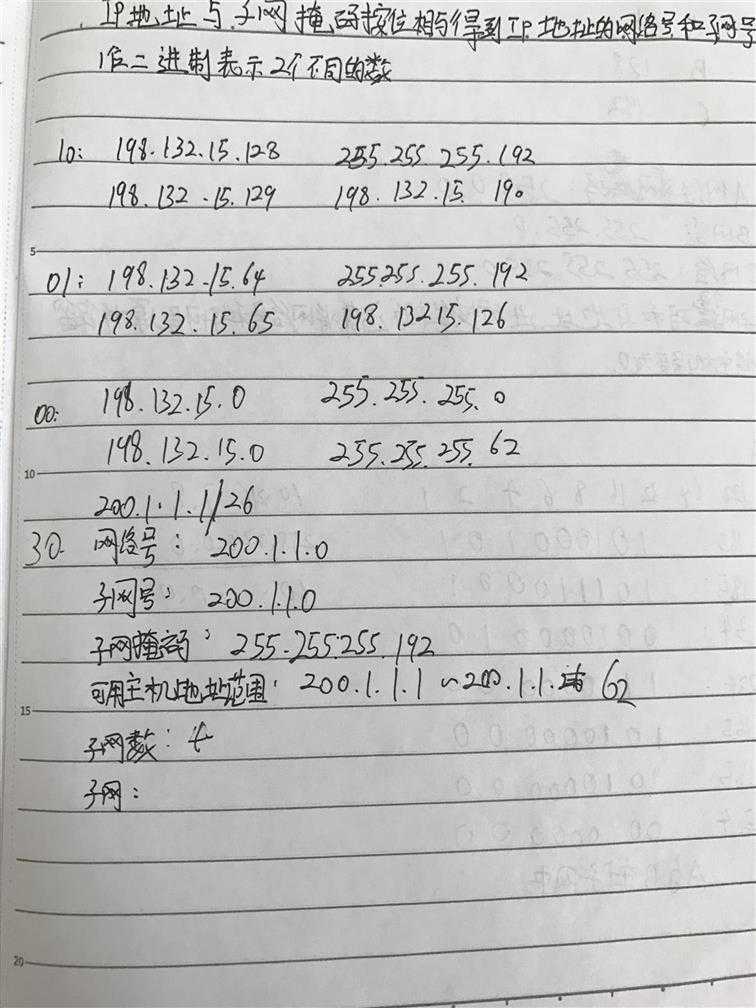 IP地址与子网掩码按位相与得到IP地址的网络号和子网号
1位二进制表示2个不同的数
10: 198.132.15.128 255.255.255.192
198.132.15.129 198.132.15.190
5
01: 198.132.15.64 255.255.255.192
198.132.15.65 198.13215.126
00: 198.132.15.0 255.255.255.0
198.132.15.0 255.255.255.62
10
200.1.1.1/26
30 网络号: 200.1.1.0
子网号: 200.1.1.0
子网掩码: 255.255.255.192
可用主机地址范围: 200.1.1.1~200.1.1.62
15
子网数: 4
子网:
20